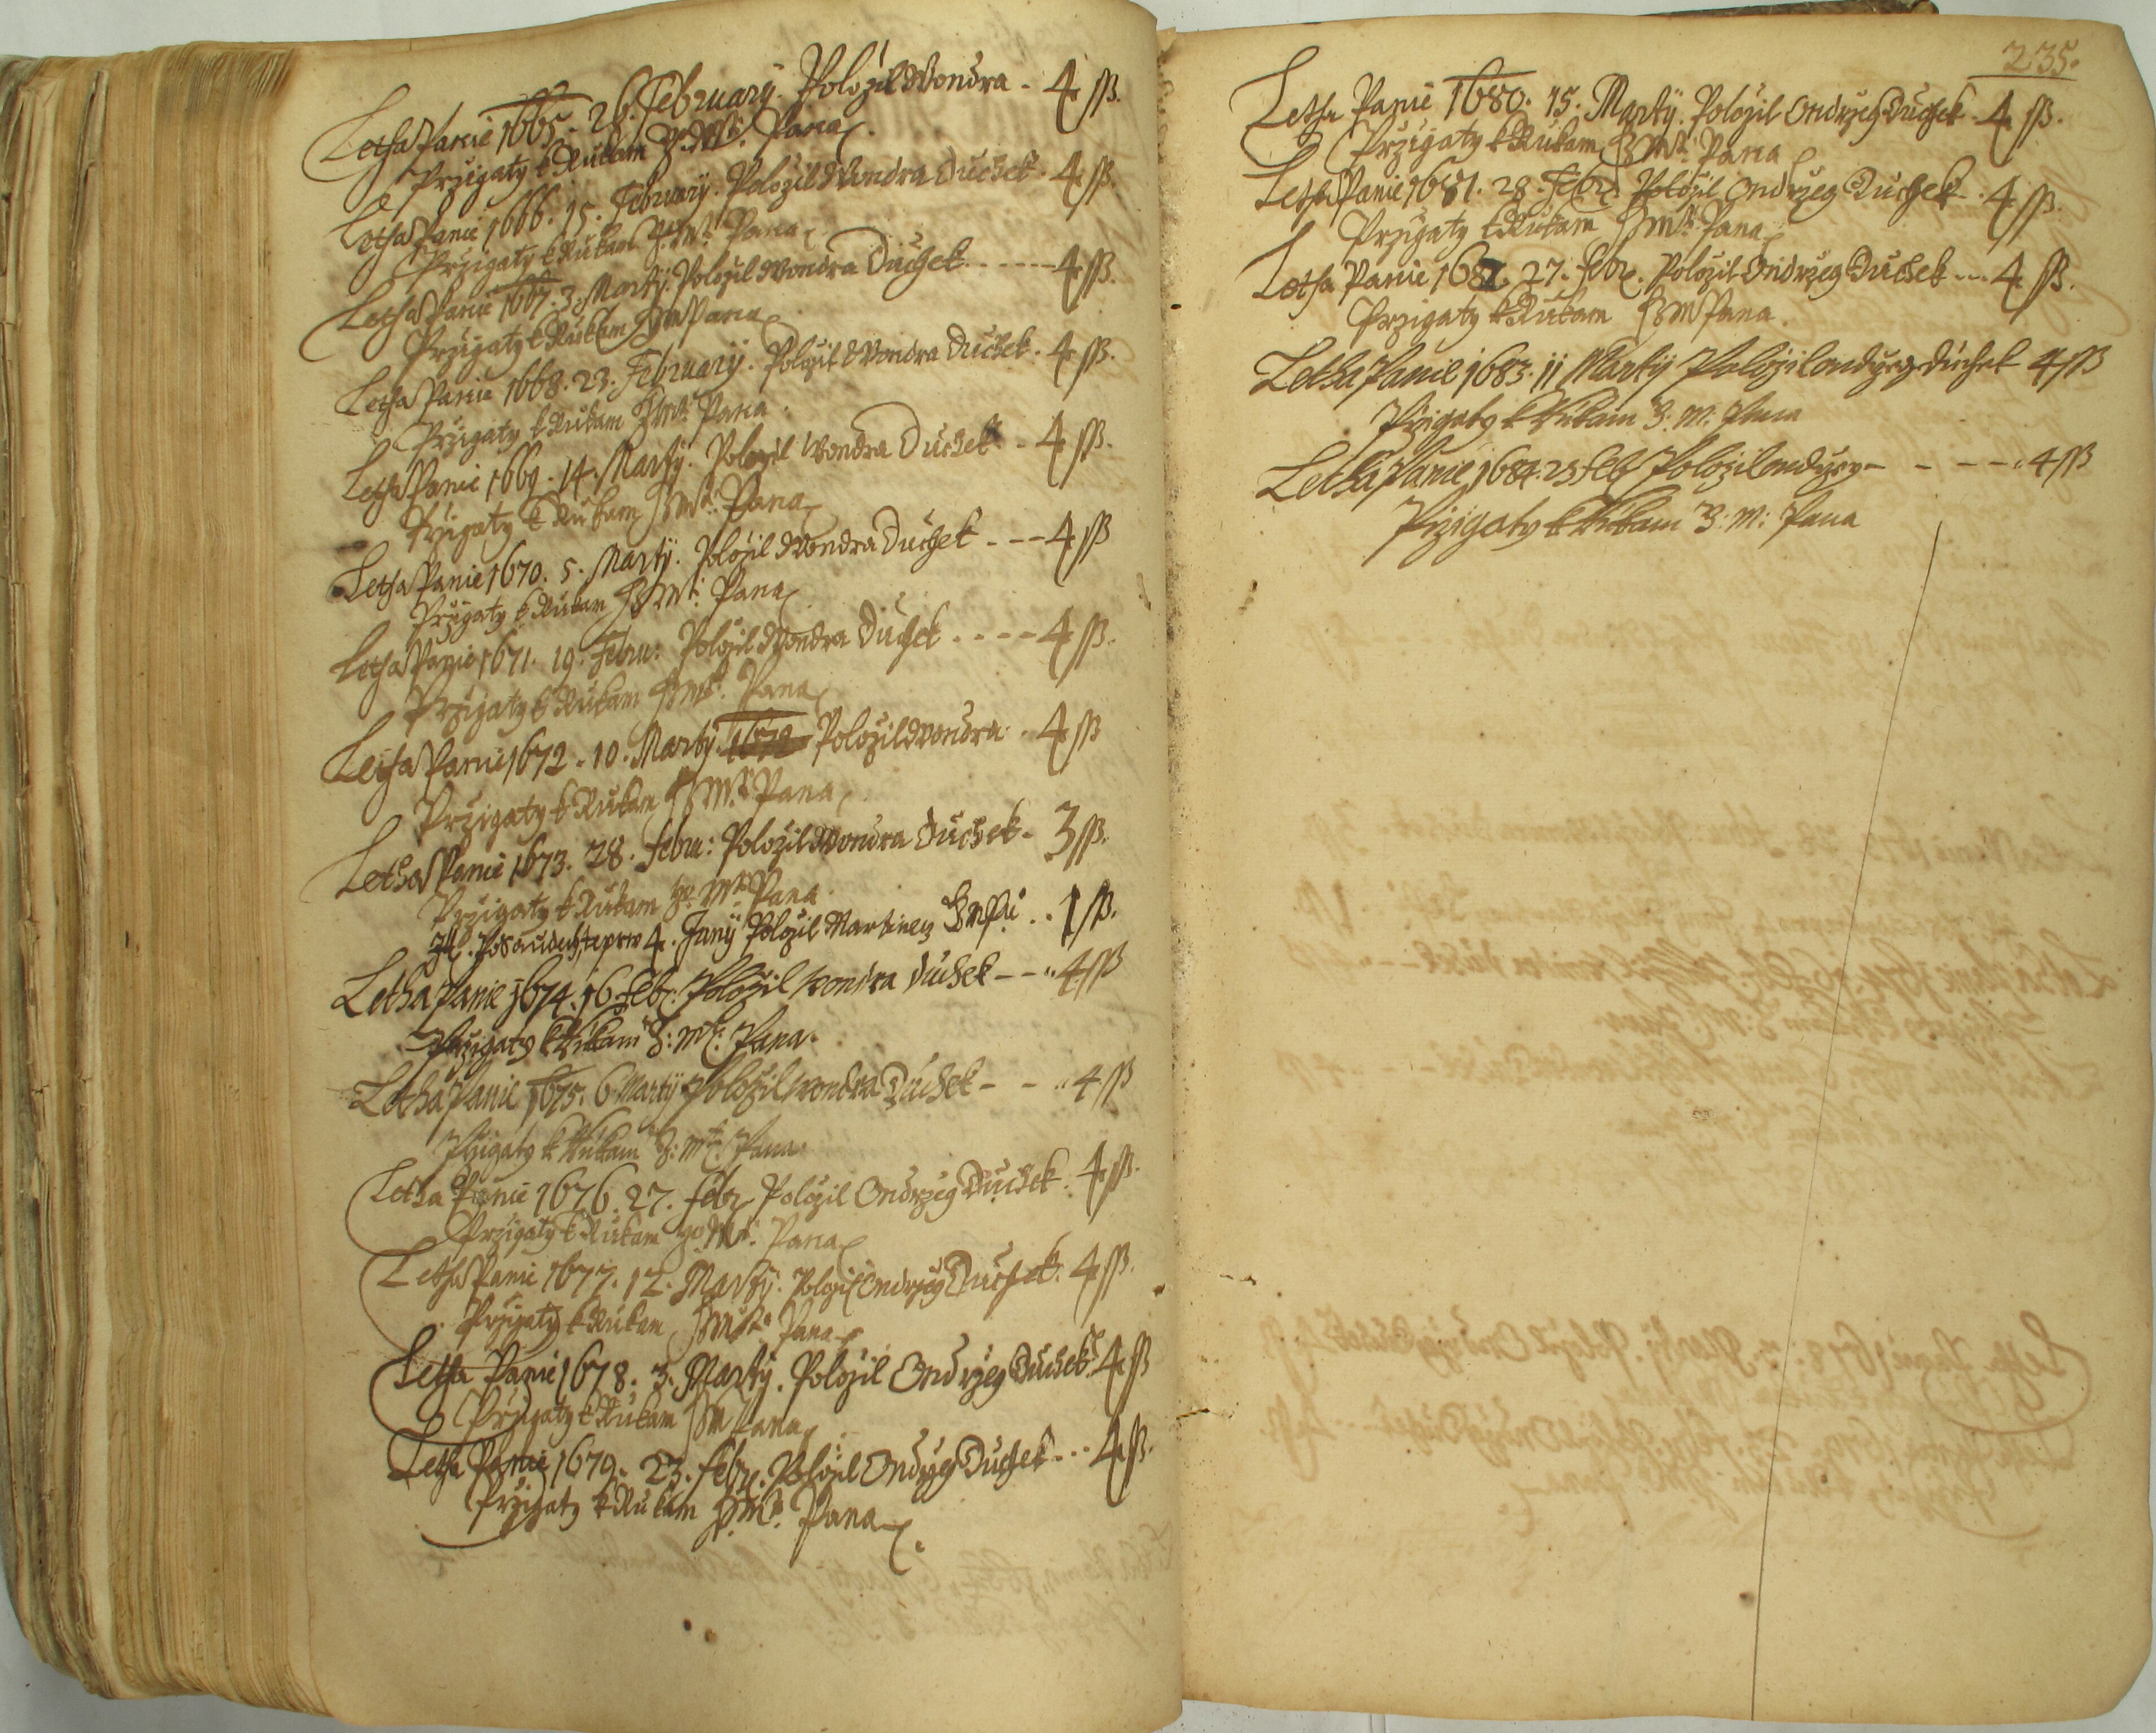 Letha Panie 1665. 26. February. Położil Wondra - 4 ſſ.
Przigaty k Rukam Ho Mti. Pana
Letha Panie 1666. 15. February. Położil Wondra Duchek. 4 ſſ.
Przigaty k Rukam Mti. Pana
Letha Panie 1667. 3. Martÿ. Położil Wondra Duchek. - - - - 4 ſſ.
Przigaty k Rukam Pana
Letha Panie 1668. 23. February. Położil Wondra Duchek. 4 ſſ.
Przigaty k Rukam Mti. Pana.
Letha Panie 1669. 14. Martÿ. Położil Wondra Duchek - 4 ſſ.
Przigaty k Rukam Mti. Pana
Letha Panie 1670. 5. Martÿ. Położil Wondra Duchek - - - 4 ſſ
Przigaty k Rukam Mti: Pana
Letha Panie 1671. 19. Febru: Położil Wondra Duchek . - - - 4 ſſ.
Przigaty k Rukam Mti. Pana
Letha Panie 1672. 10. Martÿ. 1672 Położil Wondra. - 4 ſſ
Przigaty k Rukam Mti Pana
Letha Panie 1673. 28. Febru: Położil Wondra Duchek - 3 ſſ.
Przigaty k Rukam Ho Mti Pana
4. Juny Położil Martinecz . . 1 ſſ.
Letha Panie 1674. 16 Febr: Polozil Wondra Duchek - - " 4 ſſ
Przigaty k Rukam G: Mti: Pana.
Letha Panie 1675. 6 Martÿ Polozil Wondra Duchek - - " 4 ſſ
Przigaty k Rukam G: Mti: Pana
Letha Panie 1676. 27. Febr Położil Ondrzeg Duchek. 4 ſſ.
Przigaty k Rukam Ho Mti. Pana
Letha Panie 1677. 12. Martÿ. Położil Ondrzeg Duchek. 4 ſſ.
Przigaty k Rukam Mti Pana
Letha Panie 1678. 3. Martÿ. Położil Ondrzeg Duchek. 4 ſſ
Przigaty k Rukam Pana
Letha Panie 1679. 23. Febr. Położil Ondrzeg Duchek - . . 4 ſſ.
Przigaty k Rukam Mti. Pana
235.
Letha Panie 1680. 15. Martÿ. Położil Ondrzeg Duchek. 4 ſſ.
Przigaty k Rukam Mti Pana
Letha Panie 1681. 28. Febr. Położil Ondrzeg Duchek - . 4 ſſ.
Przigaty k Rukam Mti Pana
Letha Panie 1682. 27. Febr. Położil Ondrzeg Duchek - - - 4 ſſ.
Przigaty k Rukam Pana.
Letha Panie 1683. 11 Martÿ Polozil Ondrzeg Duchek 4 ſſ
Przigaty k Rukam G: M: Pana
Letha Panie 1684. 23 Feb Polozil Ondrzeg - - - - " 4 ſſ
Przigaty k Rukam G: M: Pana